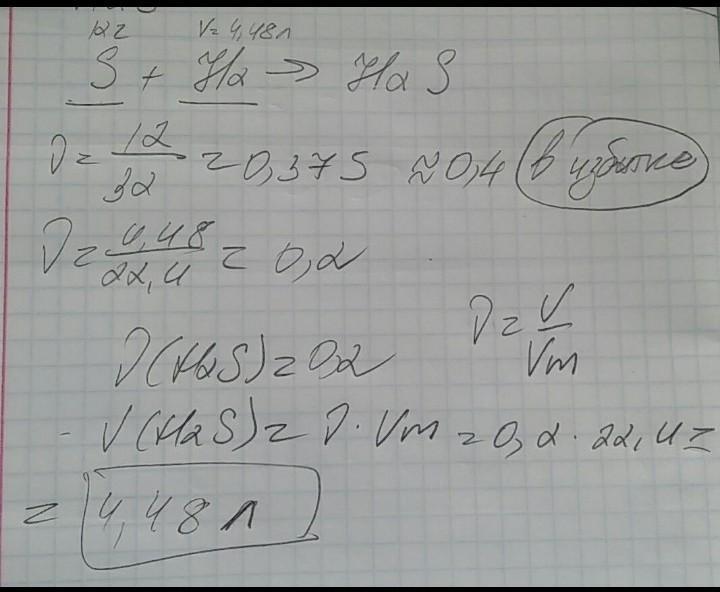 12 г V=4,48л
S + H2 → H2S
ν = 12/32 = 0,375 ≈ 0,4 в избытке
ν = 4,48/22,4 = 0,2
ν(H2S) = 0,2 ν = V/Vm
- V(H2S) = ν · Vm = 0,2 · 22,4 =
= 4,48 л